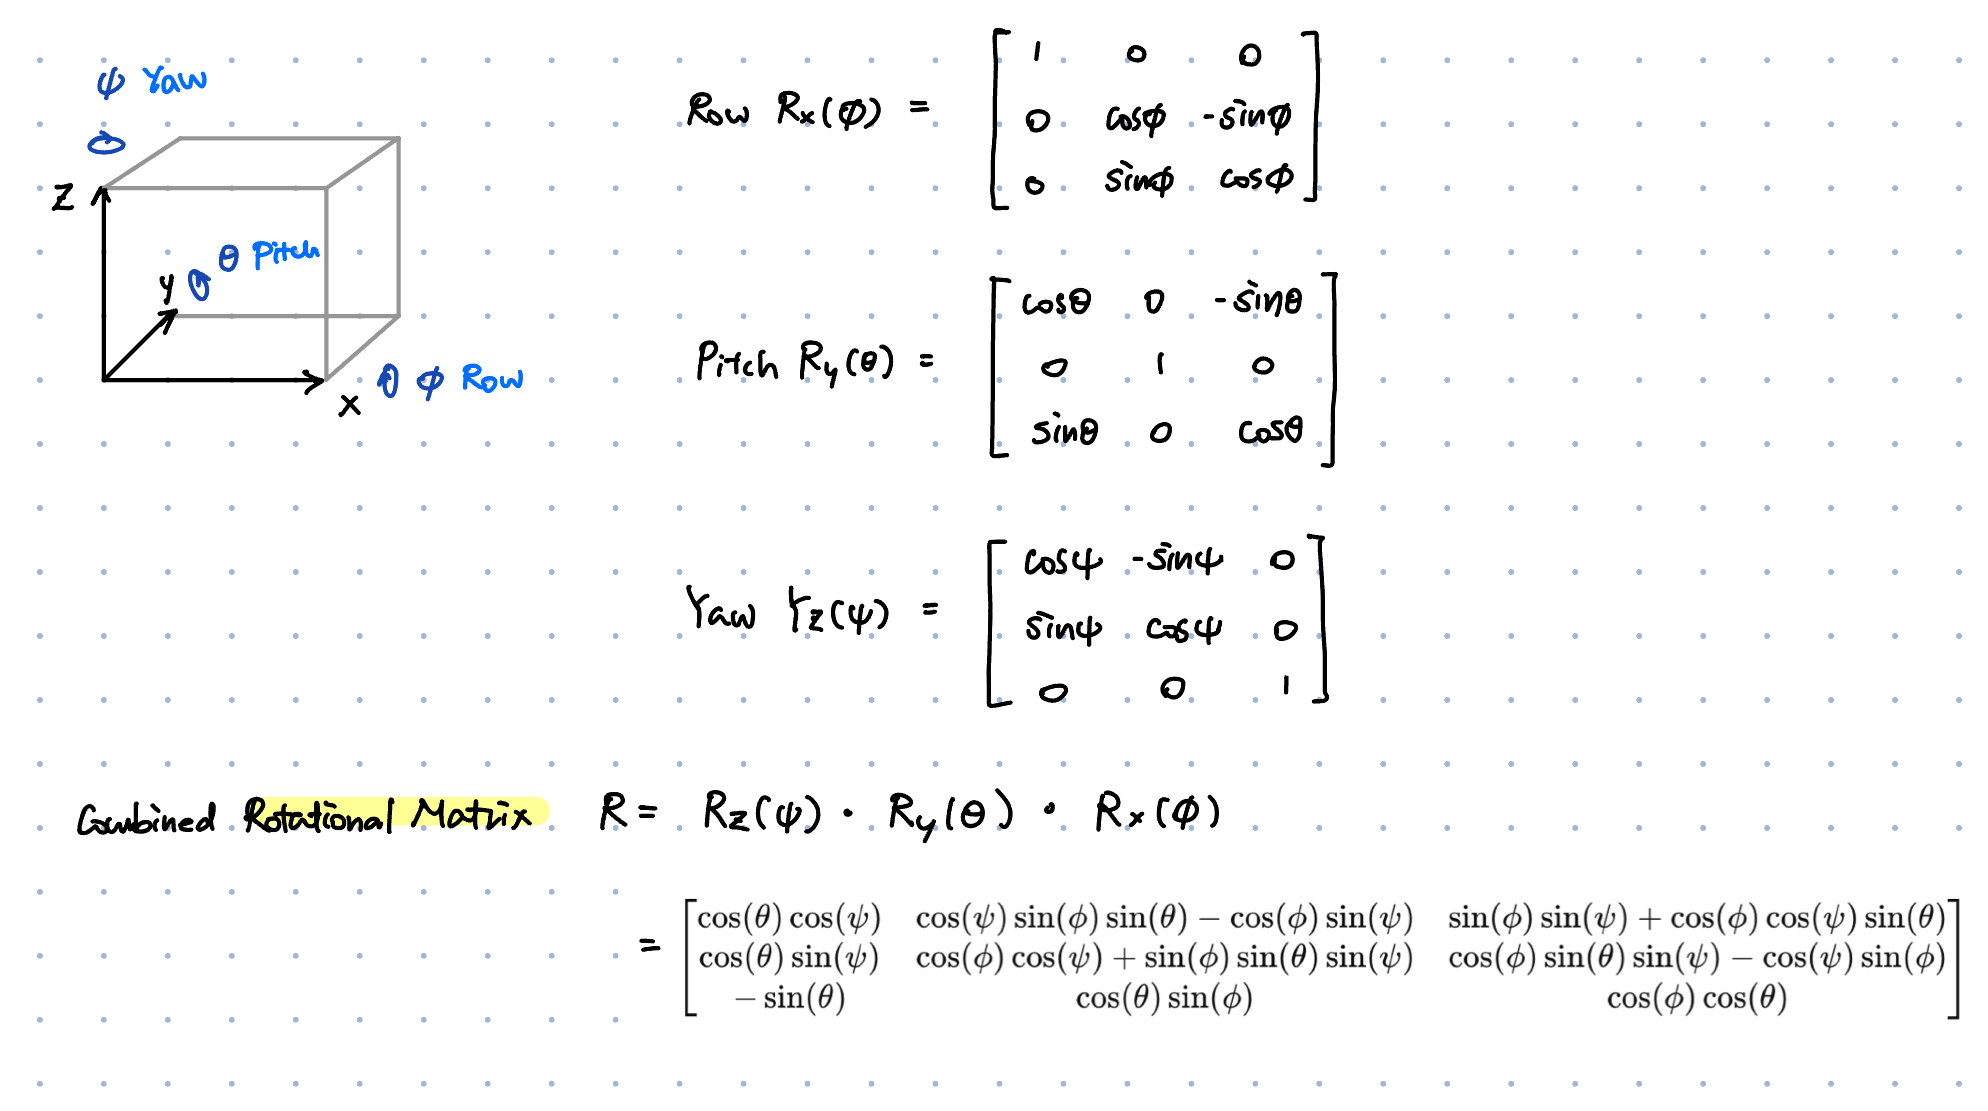 ψ Yaw
Z
θ Pitch
y
x
φ Row
Row Rx(φ) = [ 1 0 0
0 cosφ -sinφ
0 sinφ cosφ ]
Pitch Ry(θ) = [ cosθ 0 -sinθ
0 1 0
sinθ 0 cosθ ]
Yaw Yz(ψ) = [ cosψ -sinψ 0
sinψ cosψ 0
0 0 1 ]
Combined Rotational Matrix R = Rz(ψ) · Ry(θ) · Rx(φ)
= [ cos(θ) cos(ψ) cos(ψ) sin(ϕ) sin(θ) − cos(ϕ) sin(ψ) sin(ϕ) sin(ψ) + cos(ϕ) cos(ψ) sin(θ)
cos(θ) sin(ψ) cos(ϕ) cos(ψ) + sin(ϕ) sin(θ) sin(ψ) cos(ϕ) sin(θ) sin(ψ) − cos(ψ) sin(ϕ)
− sin(θ) cos(θ) sin(ϕ) cos(ϕ) cos(θ) ]